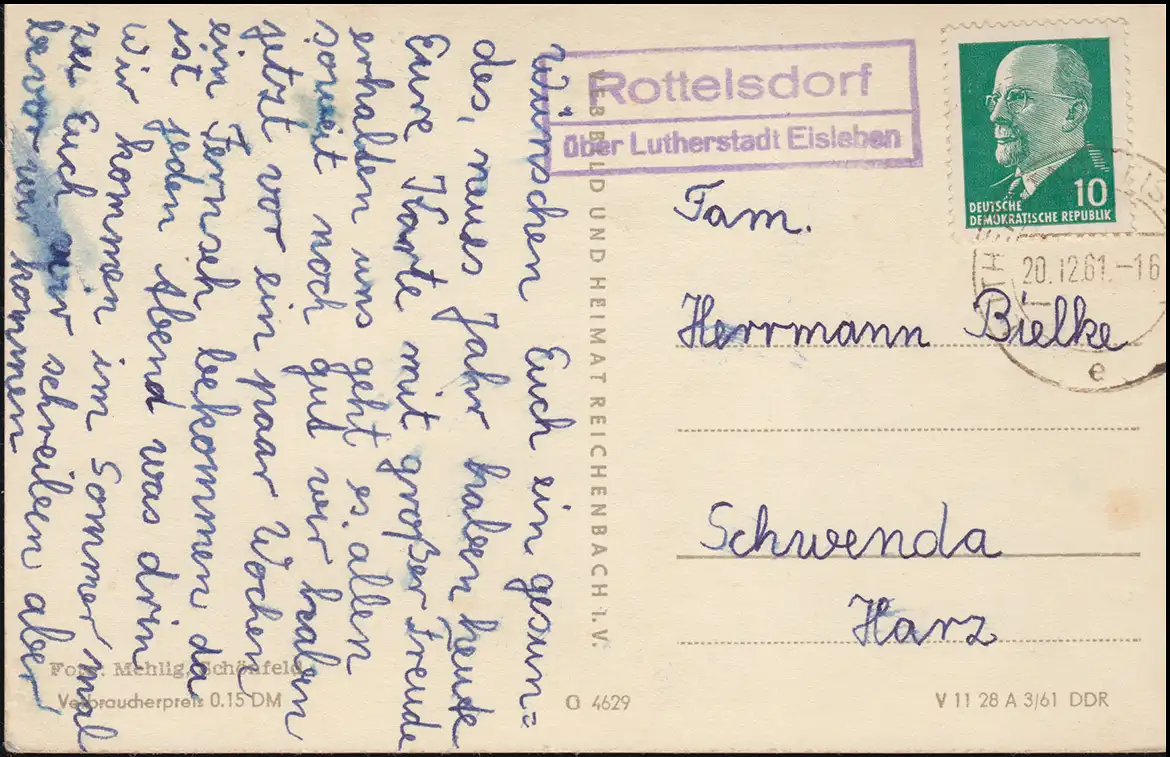 wünschen Euch ein gesun=
des, neues Jahr haben heute
Eure Karte mit großer Freude
erhalden uns geht es allen
soweit noch gut wir haben
jetzt vor ein paar Wochen
ein Fernseh bekommen da
ist jeden Abend was drin
Wir kommen im Sommer mal
zu Euch wir schreiben aber
bevor wir kommen
Foto: Mehlig, Schönfeld
Verbraucherpreis 0.15 DM
VEB BILD UND HEIMAT REICHENBACH I. V.
G 4629
Rottelsdorf
über Lutherstadt Eisleben
10
DEUTSCHE
DEMOKRATISCHE REPUBLIK
20.12.61.-16
e
Fam.
Herrmann Bielke
Schwenda
Harz
V 11 28 A 3/61 DDR